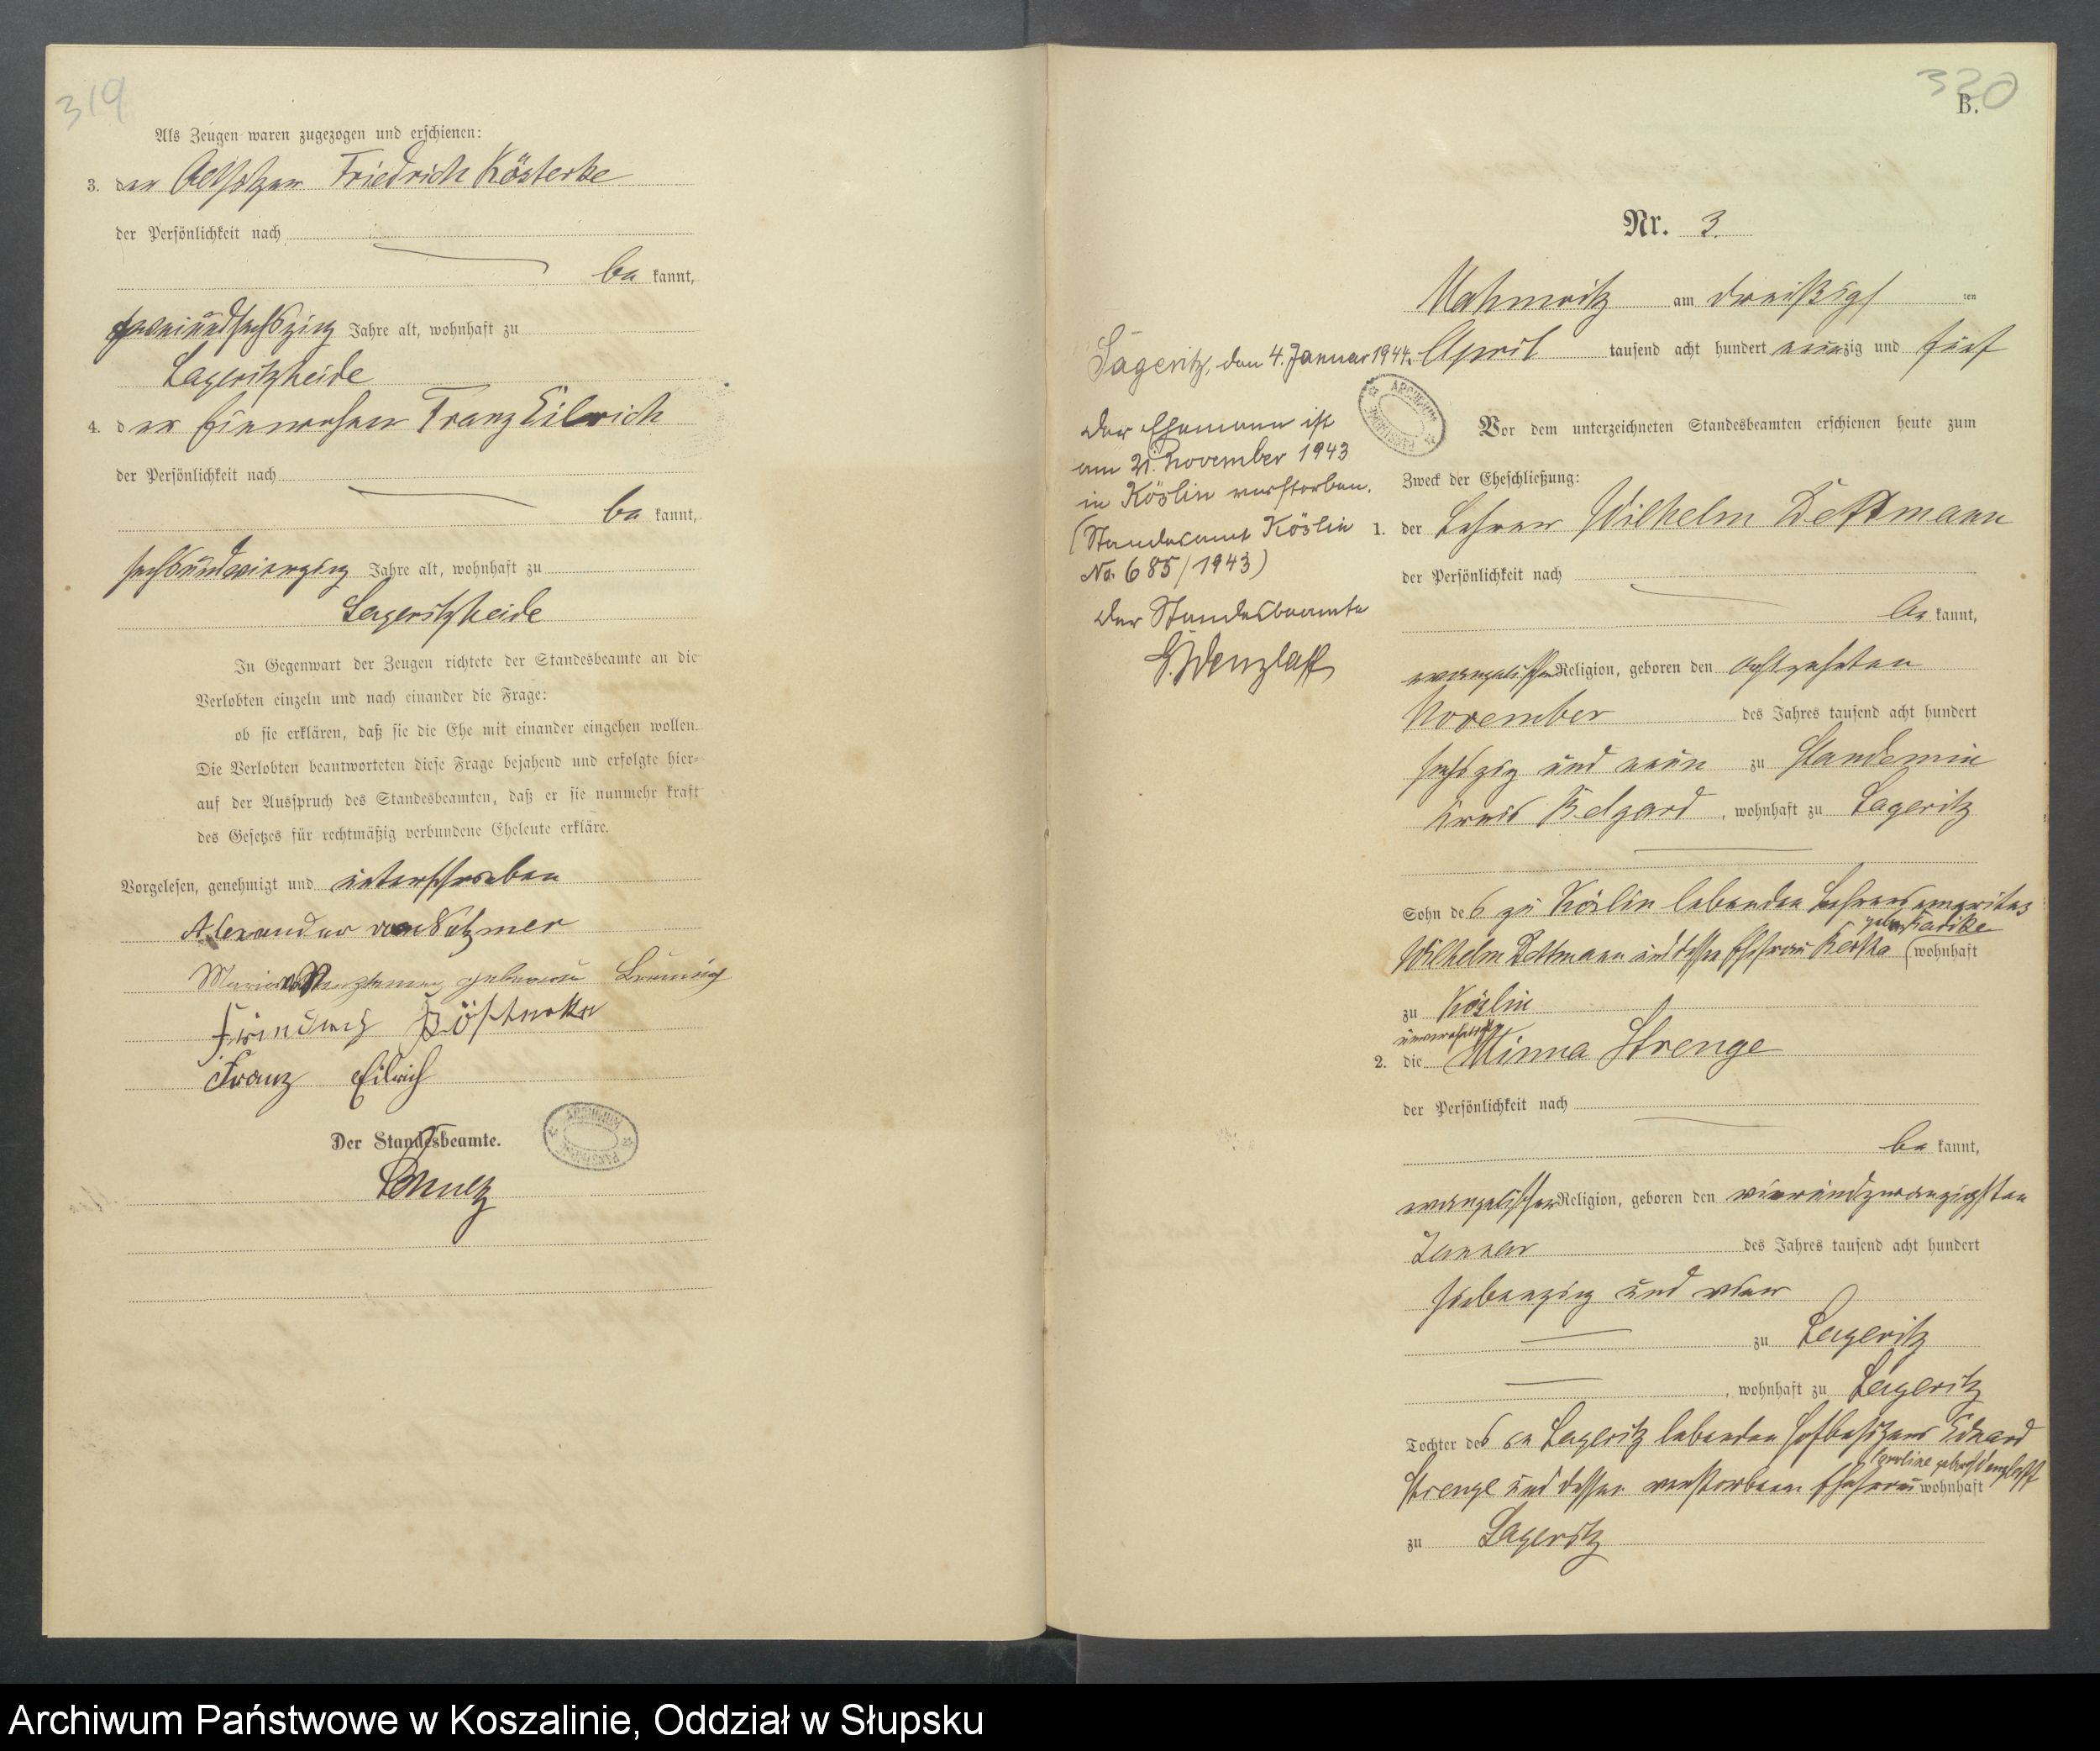 319
Als Zeugen waren zugezogen und erschienen:
3. der Altsitzer Friedrich Kösterke
der Persönlichkeit nach
be kannt,
zweiundsechszig Jahre alt, wohnhaft zu
Lageritzheide
4. der Einwohner Franz Eilrich
der Persönlichkeit nach
be kannt,
sechsundvierzig Jahre alt, wohnhaft zu
Lageritzheide
In Gegenwart der Zeugen richtete der Standesbeamte an die
Verlobten einzeln und nach einander die Frage:
ob sie erklären, daß sie die Ehe mit einander eingehen wollen.
Die Verlobten beantworteten diese Frage bejahend und erfolgte hier-
auf der Ausspruch des Standesbeamten, daß er sie nunmehr kraft
des Gesetzes für rechtmäßig verbundene Eheleute erkläre.
Vorgelesen, genehmigt und unterschrieben
Alexander von Natzmer
Maria geborene
Friedrich Kösterke
Franz Eilrich
Der Standesbeamte.
Schulz
ARCHIWUM PAŃSTWOWE
320
B.
Nr. 3.
am dreißigsten
April tausend acht hundert neunzig und fünf
Vor dem unterzeichneten Standesbeamten erschienen heute zum
Zweck der Eheschließung:
1. der Lehrer Wilhelm Dettmann
der Persönlichkeit nach
be kannt,
evangelischer Religion, geboren den achtzehnten
November des Jahres tausend acht hundert
sechszig und neun zu Standemin
Kreis Belgard, wohnhaft zu Lageritz
Sohn des zu Köslin lebenden Lehrers emeritus
Wilhelm Dettmann und dessen Ehefrau geb. Radtke wohnhaft
zu Köslin
2. die unverehelichte Minna Strenge
der Persönlichkeit nach
be kannt,
evangelischer Religion, geboren den vierundzwanzigsten
Januar des Jahres tausend acht hundert
siebenzig und vier
zu Lageritz
, wohnhaft zu Lageritz
Tochter des in Lageritz lebenden Hofbesitzers Eduard
Strenge und dessen verstorbenen Ehefrau Caroline geborne Wenzlaff wohnhaft
zu Lageritz
Lageritz, den 4. Januar 1944.
ARCHIWUM PAŃSTWOWE
Der Ehemann ist
am 21. November 1943
in Köslin verstorben.
(Standesamt Köslin
No. 685/1943)
Der Standesbeamte
G. Wenzlaff
Archiwum Państwowe w Koszalinie, Oddział w Słupsku